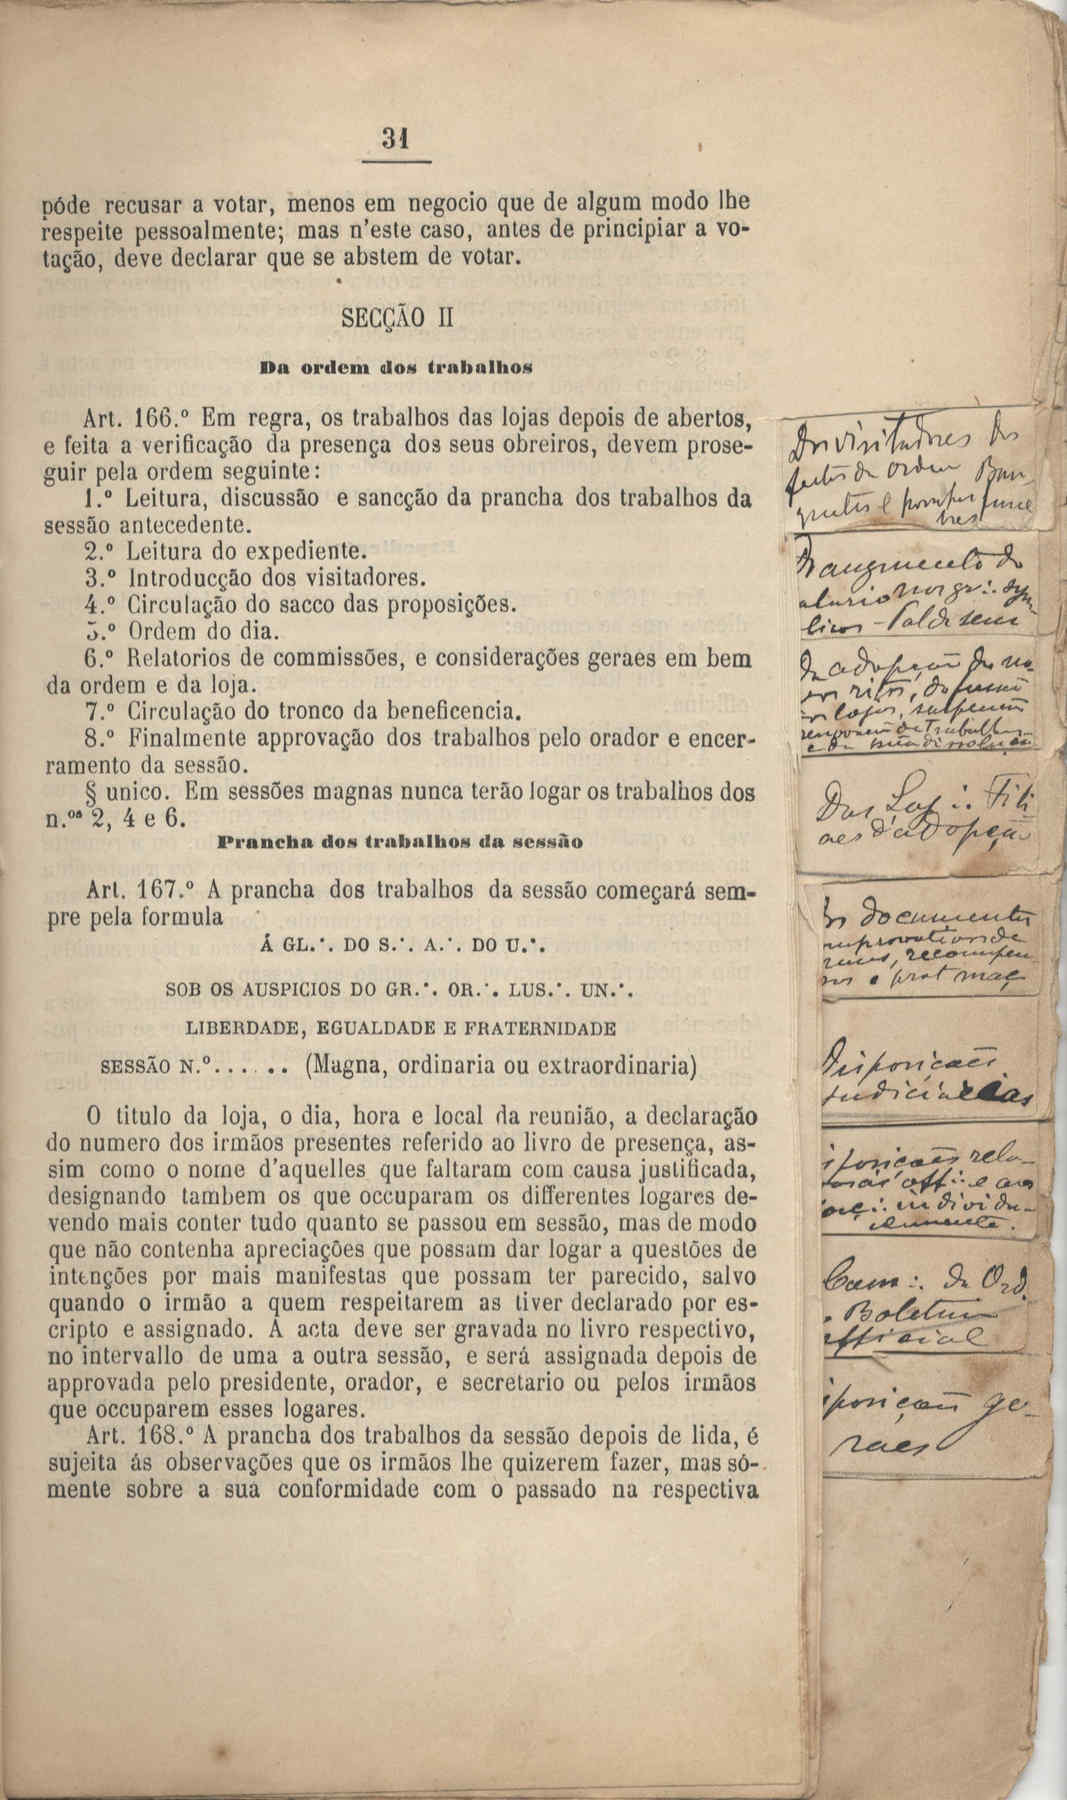 31
póde recusar a votar, menos em negocio que de algum modo lhe
respeite pessoalmente; mas n'este caso, antes de principiar a vo-
tação, deve declarar que se abstem de votar.
SECÇÃO II
Da ordem dos trabalhos
Art. 166.º Em regra, os trabalhos das lojas depois de abertos,
e feita a verificação da presença dos seus obreiros, devem prose-
guir pela ordem seguinte:
1.º Leitura, discussão e sancção da prancha dos trabalhos da
sessão antecedente.
2.º Leitura do expediente.
3.º Introducção dos visitadores.
4.º Circulação do sacco das proposições.
5.º Ordem do dia.
6.º Relatorios de commissões, e considerações geraes em bem
da ordem e da loja.
7.º Circulação do tronco da beneficencia.
8.º Finalmente approvação dos trabalhos pelo orador e encer-
ramento da sessão.
§ unico. Em sessões magnas nunca terão logar os trabalhos dos
n.ºˢ 2, 4 e 6.
Prancha dos trabalhos da sessão
Art. 167.º A prancha dos trabalhos da sessão começará sem-
pre pela formula
Á GL.·. DO S.·. A.·. DO U.·.
SOB OS AUSPICIOS DO GR.·. OR.·. LUS.·. UN.·.
LIBERDADE, EGUALDADE E FRATERNIDADE
SESSÃO N.º...... (Magna, ordinaria ou extraordinaria)
O titulo da loja, o dia, hora e local da reunião, a declaração
do numero dos irmãos presentes referido ao livro de presença, as-
sim como o nome d'aquelles que faltaram com causa justificada,
designando tambem os que occuparam os differentes logares de-
vendo mais conter tudo quanto se passou em sessão, mas de modo
que não contenha apreciações que possam dar logar a questões de
intenções por mais manifestas que possam ter parecido, salvo
quando o irmão a quem respeitarem as tiver declarado por es-
cripto e assignado. A acta deve ser gravada no livro respectivo,
no intervallo de uma a outra sessão, e será assignada depois de
approvada pelo presidente, orador, e secretario ou pelos irmãos
que occuparem esses logares.
Art. 168.º A prancha dos trabalhos da sessão depois de lida, é
sujeita ás observações que os irmãos lhe quizerem fazer, mas só-
mente sobre a sua conformidade com o passado na respectiva
Dos visitadores das
festas da ordem Ban
quetes e pompas fune
bres
Do augmento do
da adopção de no-
Das Loj.·. Fili
aes d'adopção
os documentos
Disposições
judiciarias
individu-
almente.
Cam.·. da Ord.
Boletim
official
isposições ge-
raes